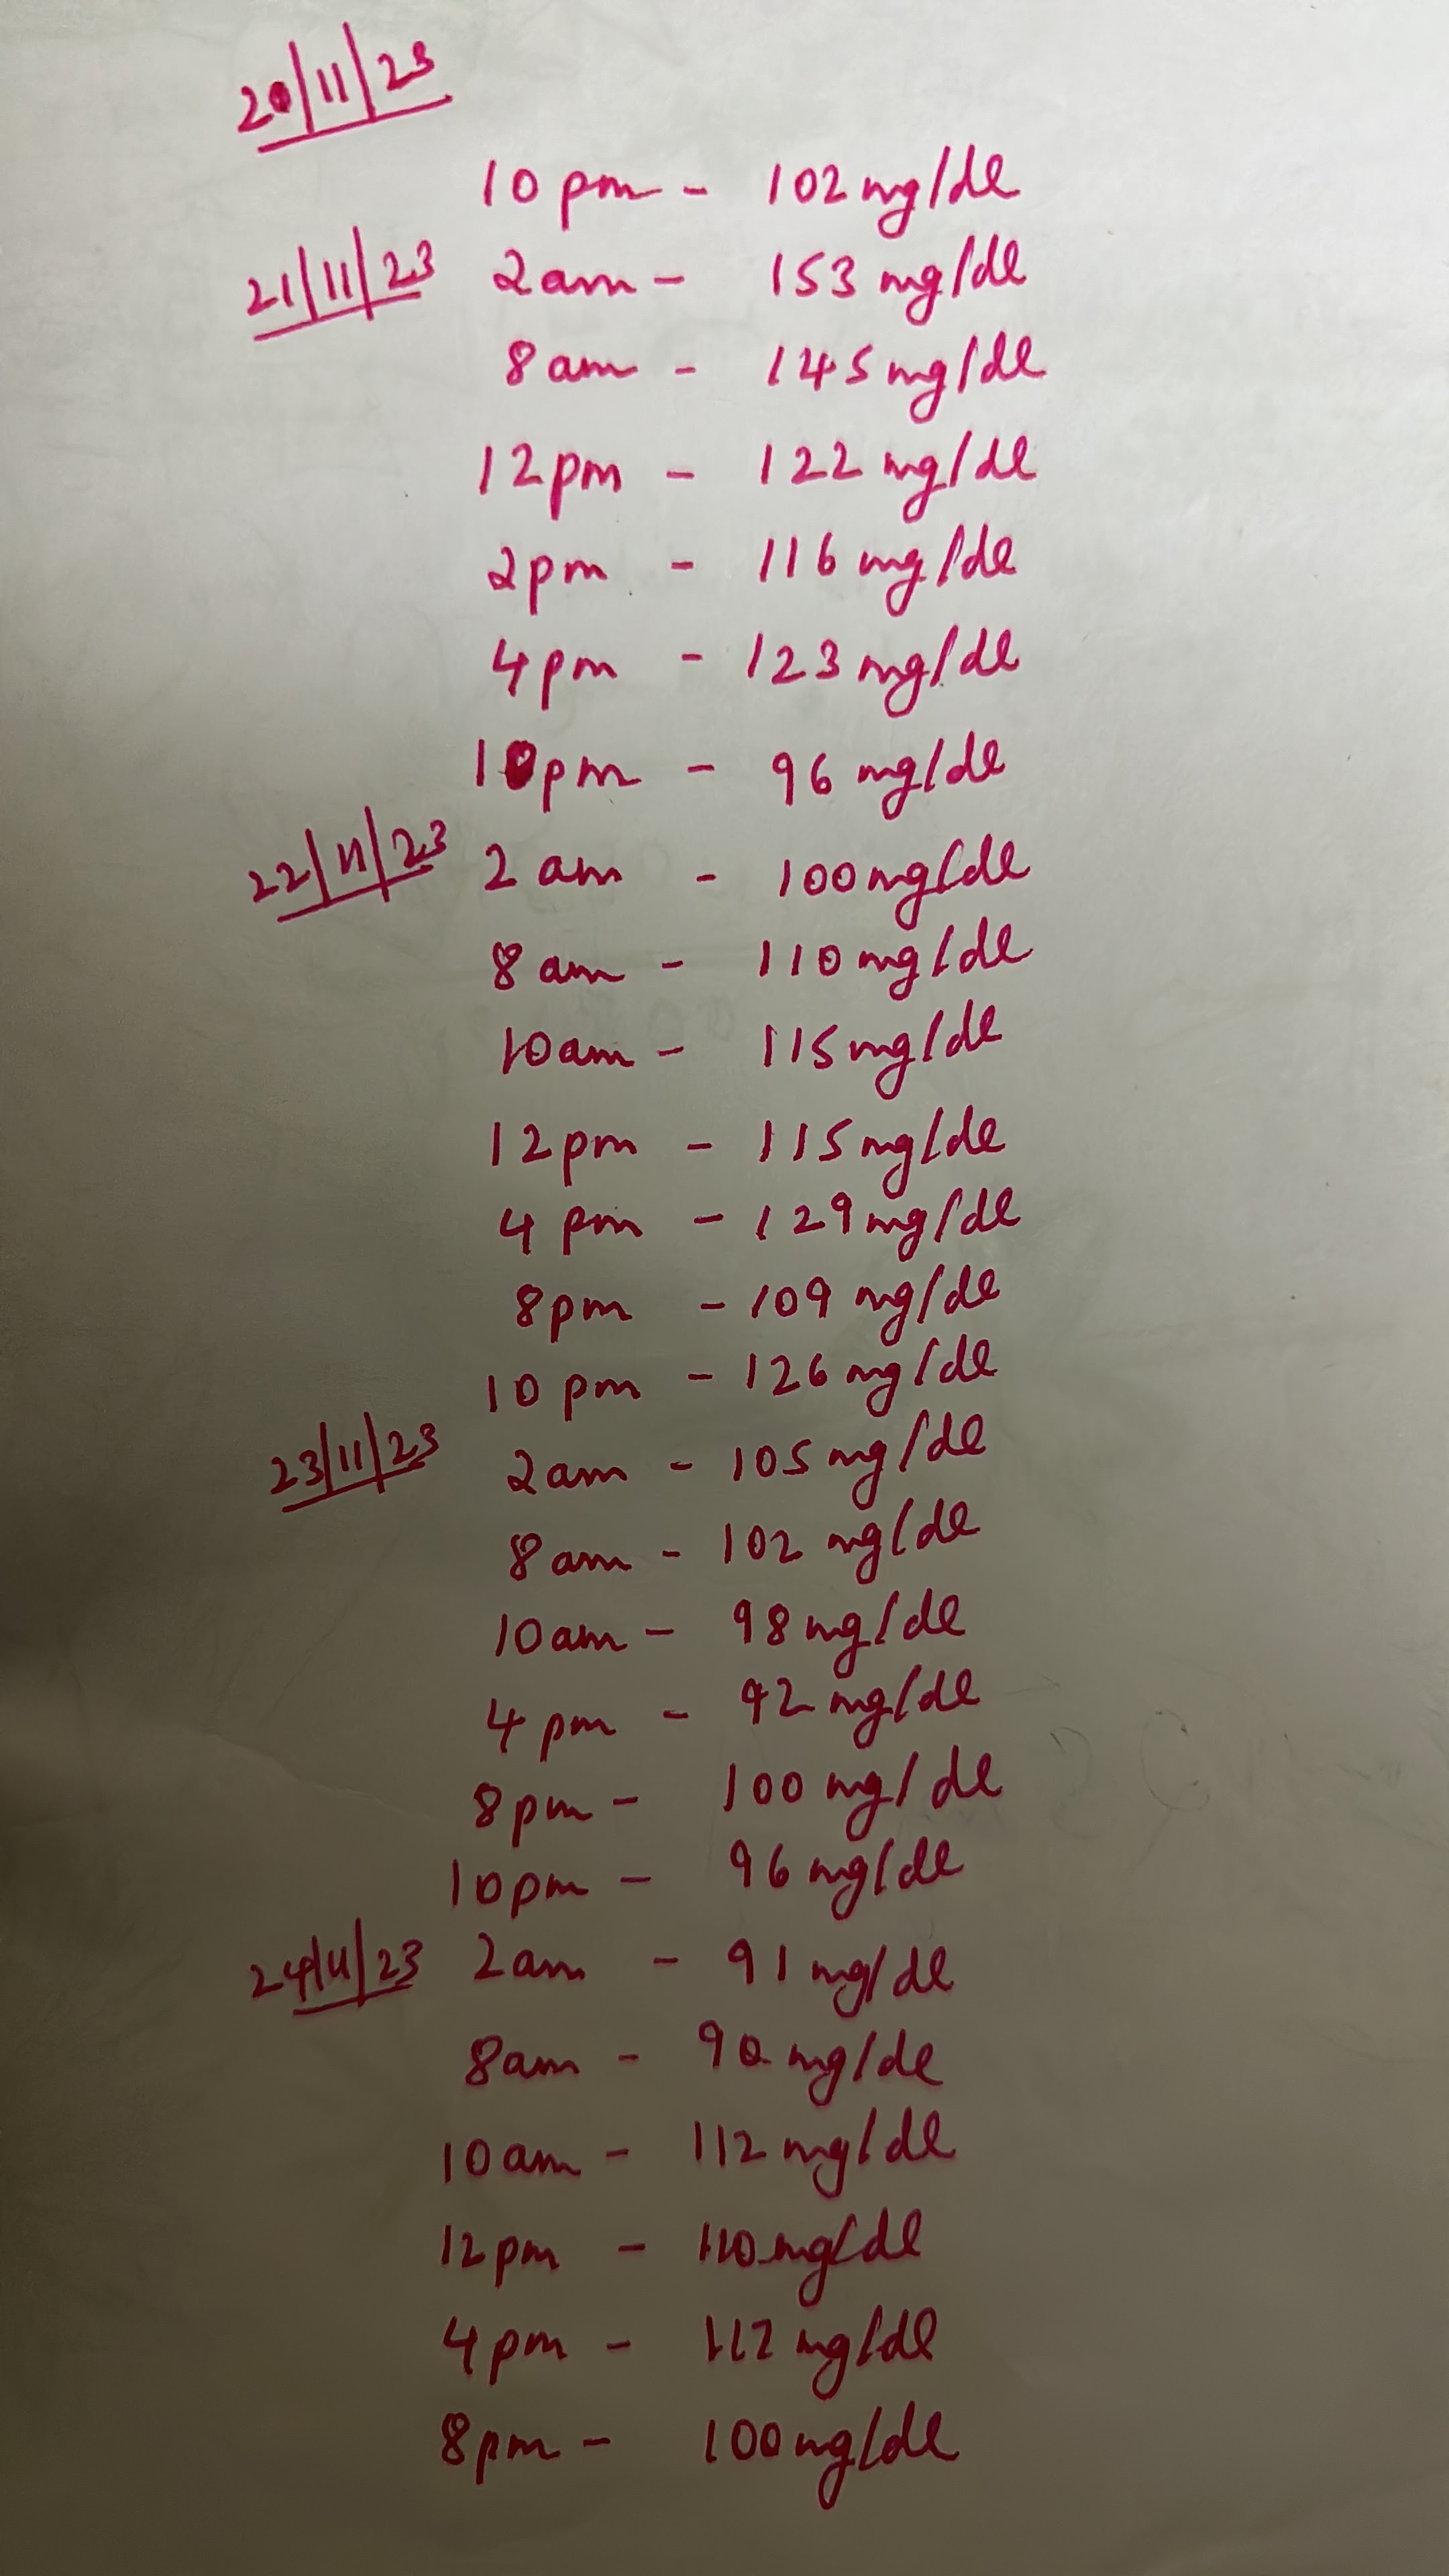 20/11/23
10 pm - 102 mg/dl
21/11/23 2am - 153 mg/dl
8 am - 145 mg/dl
12pm - 122 mg/dl
2pm - 116 mg/dl
4pm - 123 mg/dl
10pm - 96 mg/dl
22/11/23 2 am - 100 mg/dl
8 am - 110 mg/dl
10am - 115 mg/dl
12pm - 115 mg/dl
4 pm - 129 mg/dl
8pm - 109 mg/dl
10 pm - 126 mg/dl
23/11/23 2am - 105 mg/dl
8am - 102 mg/dl
10am - 98 mg/dl
4 pm - 92 mg/dl
8pm - 100 mg/dl
10pm - 96 mg/dl
24/11/23 2am - 91 mg/dl
8am - 90 mg/dl
10am - 112 mg/dl
12pm - 110 mg/dl
4pm - 112 mg/dl
8pm - 100 mg/dl